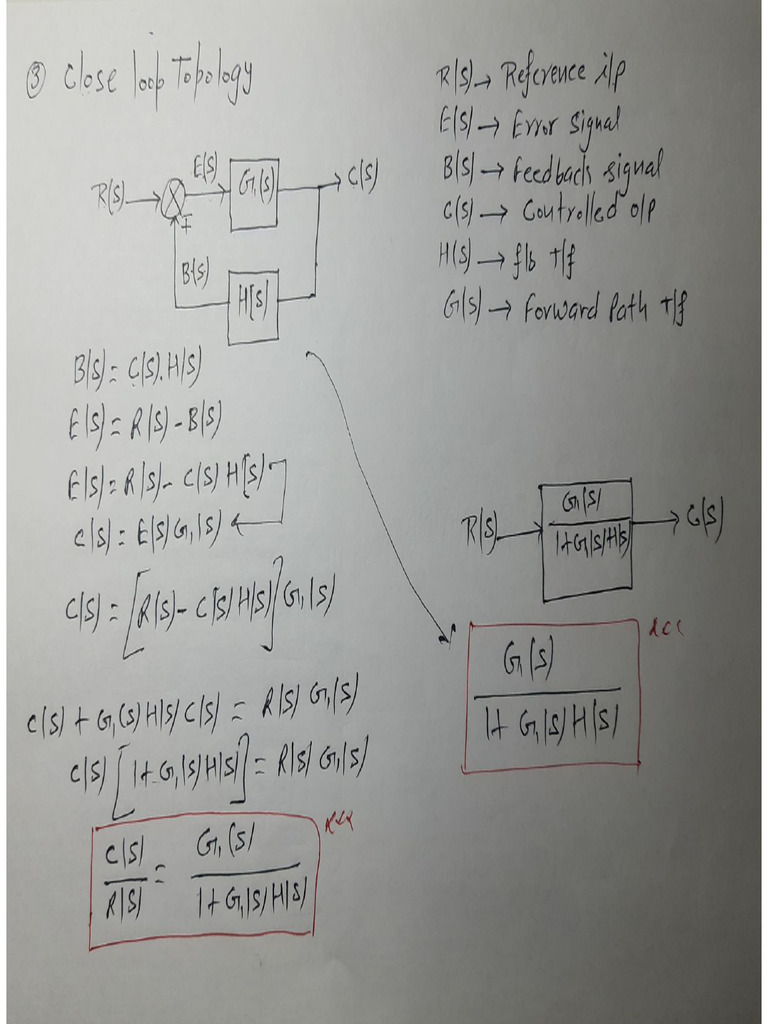 ③ Close loop Topology
R(S) → Reference i/p
E(S) → Error Signal
B(S) → Feedback signal
C(S) → Controlled o/p
H(S) → f/b t/f
G(S) → Forward Path t/f
R(S) E(S) G(S) C(S)
B(S) H(S)
B(S) = C(S).H(S)
E(S) = R(S) - B(S)
E(S) = R(S) - C(S) H(S)
C(S) = E(S) G(S)
C(S) = [R(S) - C(S) H(S)] G(S)
C(S) + G(S) H(S) C(S) = R(S) G(S)
C(S) [1+ G(S) H(S)] = R(S) G(S)
C(S)/R(S) = G(S)/1+ G(S) H(S)
R(S) → G(S)/1+G(S)H(S) → C(S)
G(S)
1+ G(S) H(S)